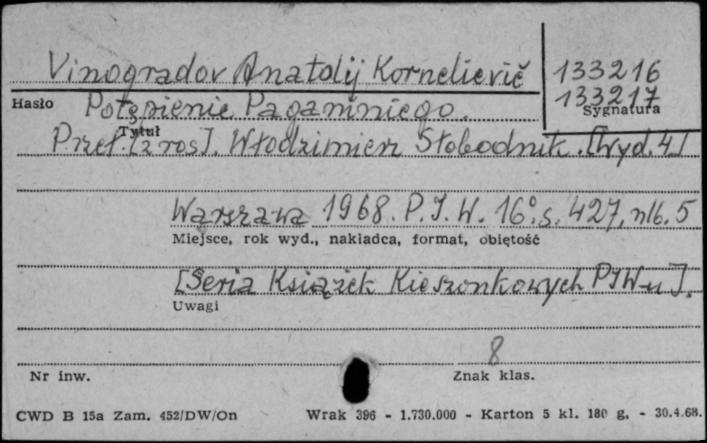 Vinogradov Anatolij Kornelievič
133216
133217
Hasło
Sygnatura
Potępienie Paganiniego.
Tytuł
Przeł. [z ros]. Włodzimierz Słobodnik. [Wyd. 4]
Warszawa 1968. P.I.W. 16° s. 427, nlb. 5
Miejsce, rok wyd., nakładca, format, obiętość
[Seria Książek Kieszonkowych PIW-u].
Uwagi
8
Nr inw.
Znak klas.
CWD B 15a Zam. 452/DW/On Wrak 396 - 1.730.000 - Karton 5 kl. 180 g. - 30.4.68.